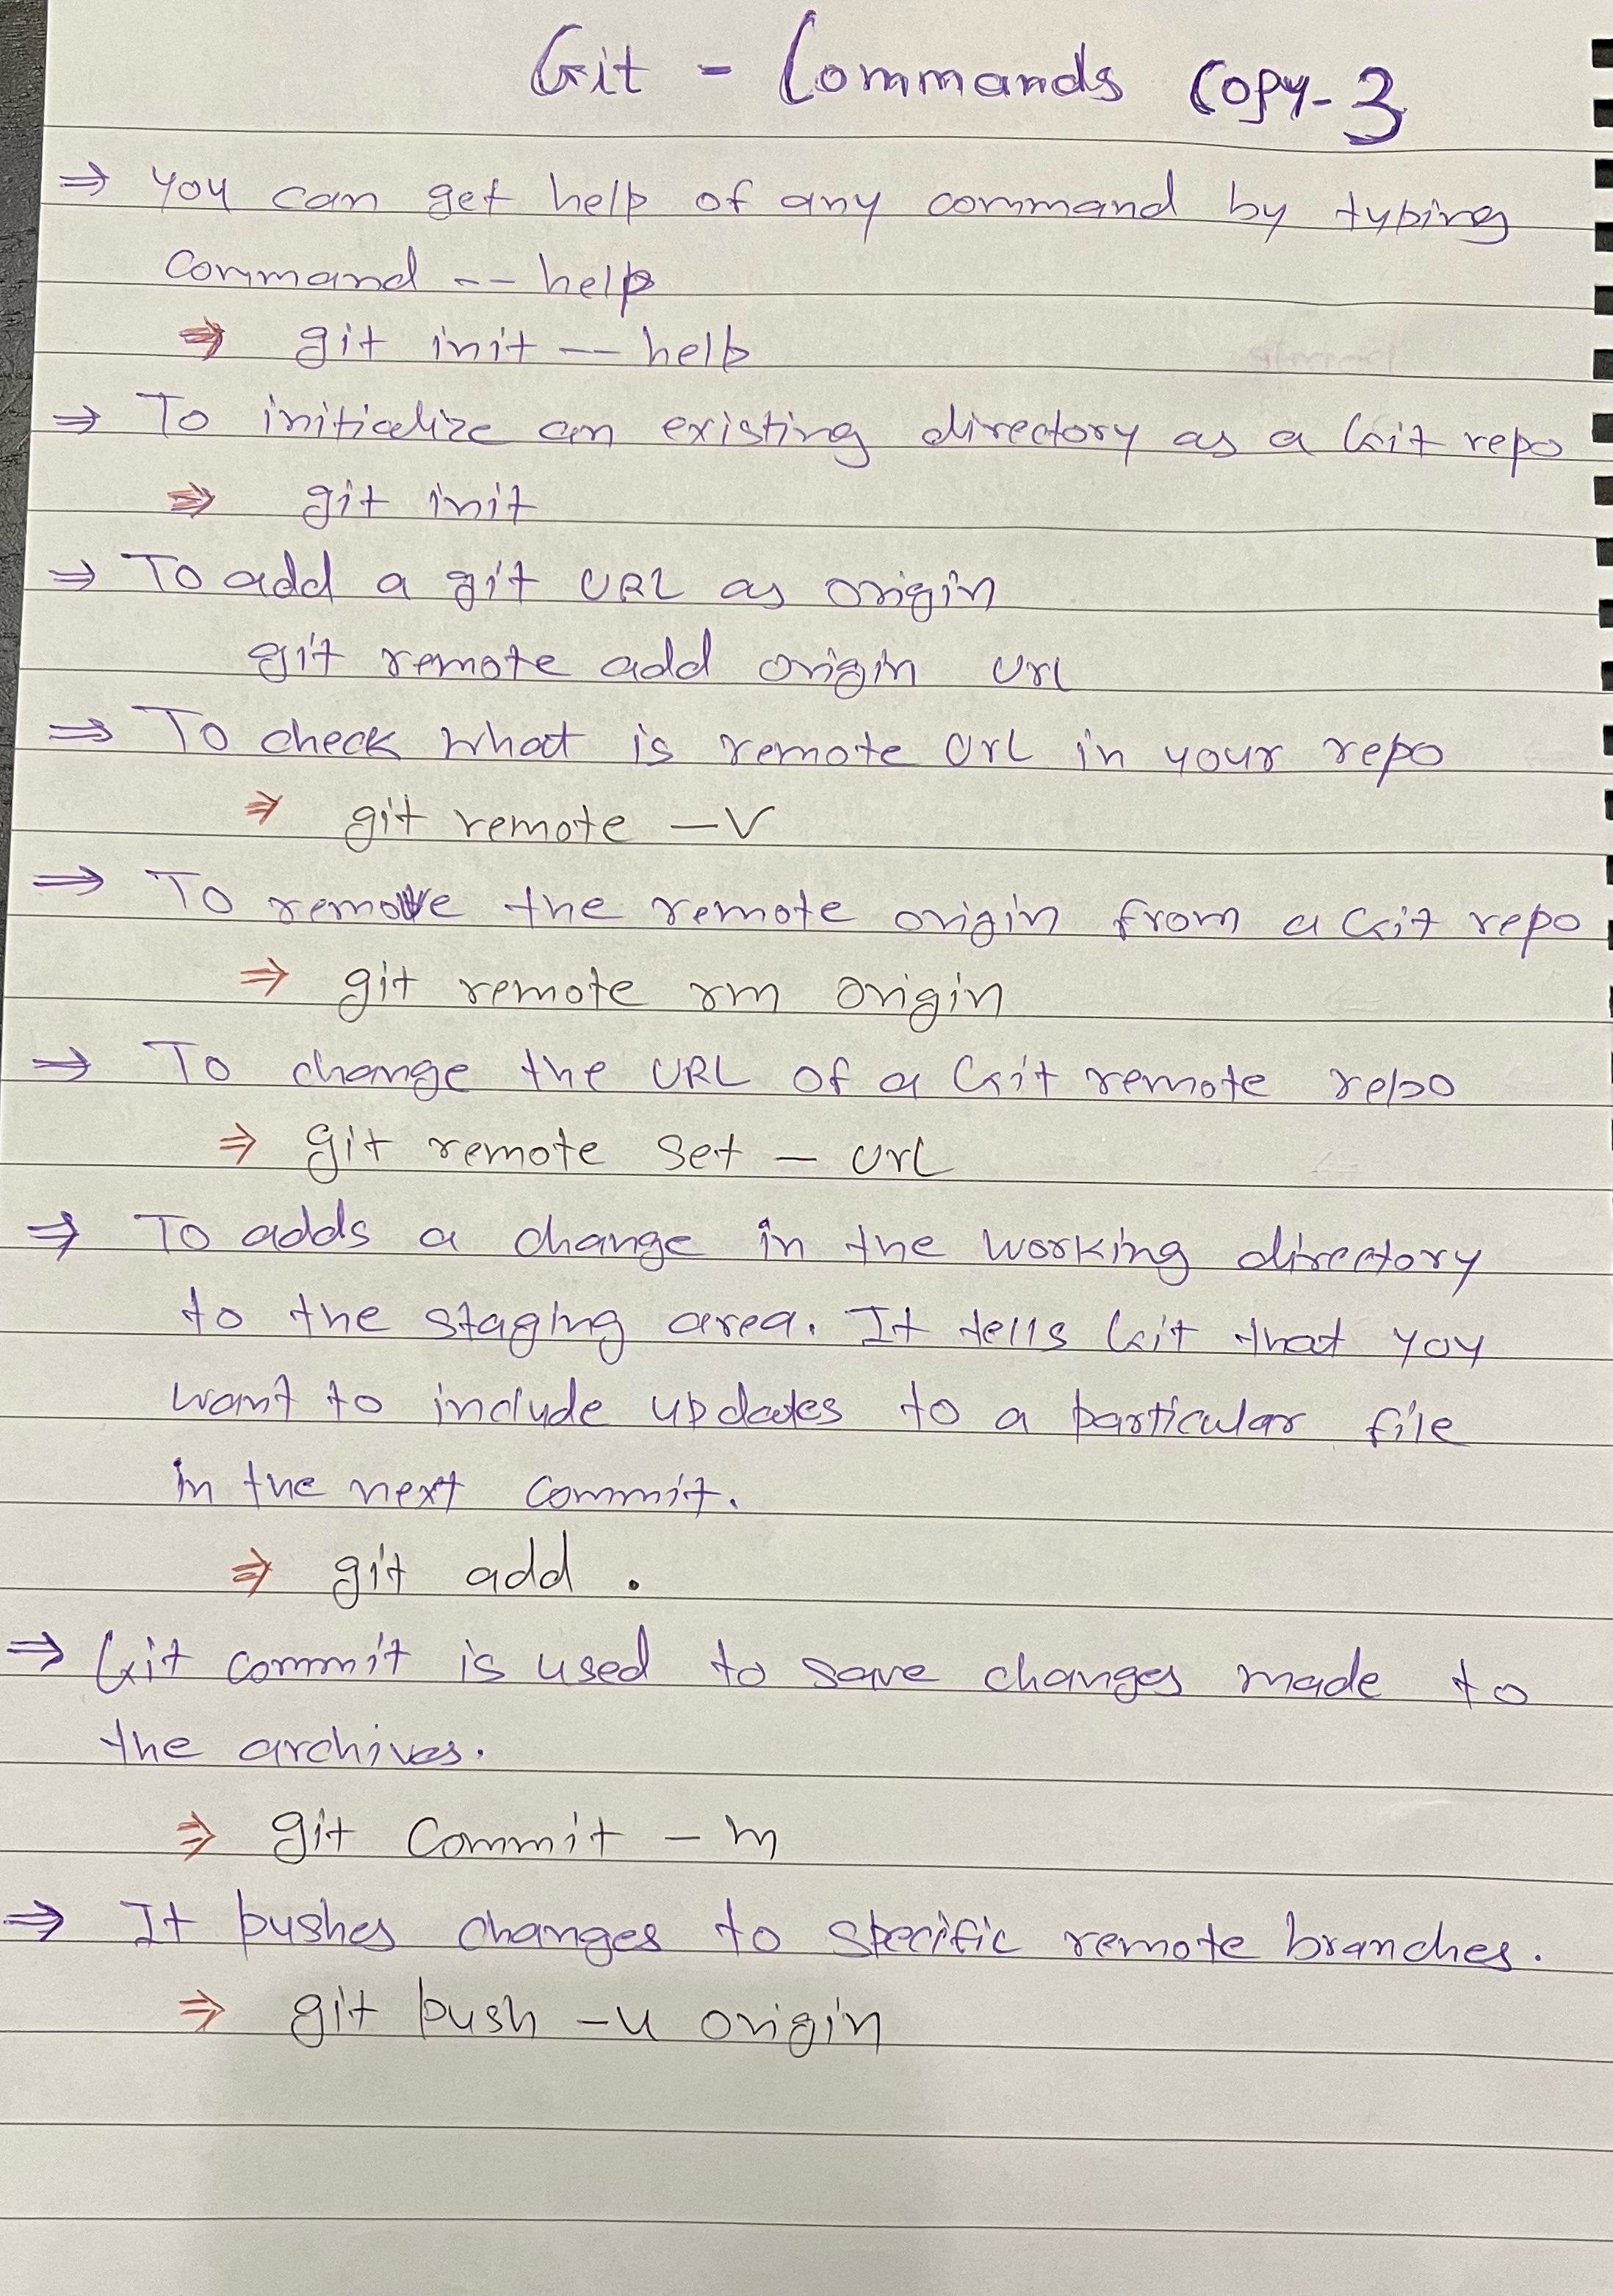 Git - Commands Copy-3
⇒ You can get help of any command by typing
command -- help
⇒ git init -- help
⇒ To initialize an existing directory as a Git repo
⇒ git init
⇒ To add a git URL as origin
git remote add origin url
⇒ To check what is remote url in your repo
⇒ git remote -v
⇒ To remove the remote origin from a Git repo
⇒ git remote rm origin
⇒ To change the URL of a Git remote repo
⇒ git remote set - url
⇒ To adds a change in the working directory
to the staging area. It tells Git that you
want to include updates to a particular file
in the next commit.
⇒ git add .
⇒ Git commit is used to save changes made to
the archives.
⇒ git commit - m
⇒ It pushes changes to specific remote branches.
⇒ git push -u origin